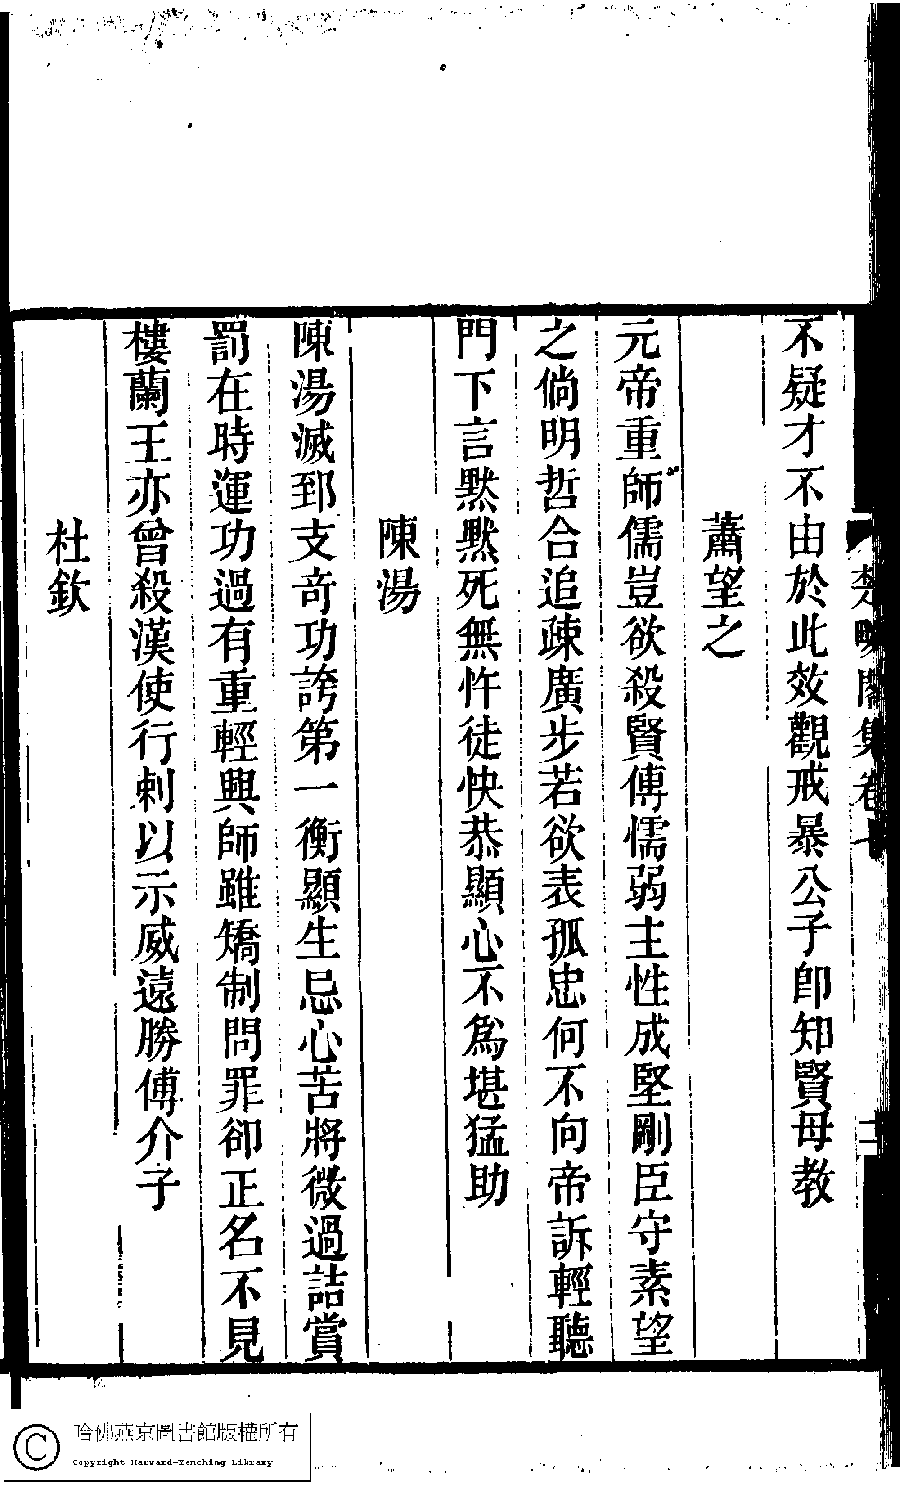 不疑才不由於此效觀戒暴公子卽知賢母教
蕭望之
元帝重師儒豈欲殺賢傅懦弱主性成堅剛臣守素望
之倘明哲合追疎廣步若欲表孤忠何不向帝訴輕聽
門下言黙黙死無忤徒快恭顯心不爲堪猛助
陳湯
陳湯滅郅支奇功誇第一衡顯生忌心苦將微過詰賞
罰在時運功過有重輕興師雖矯制問罪卻正名不見
樓蘭王亦曾殺漢使行刺以示威遠勝傅介子
杜欽
哈佛燕京圖書館版權所有
Copyright Harvard-Yenching Library